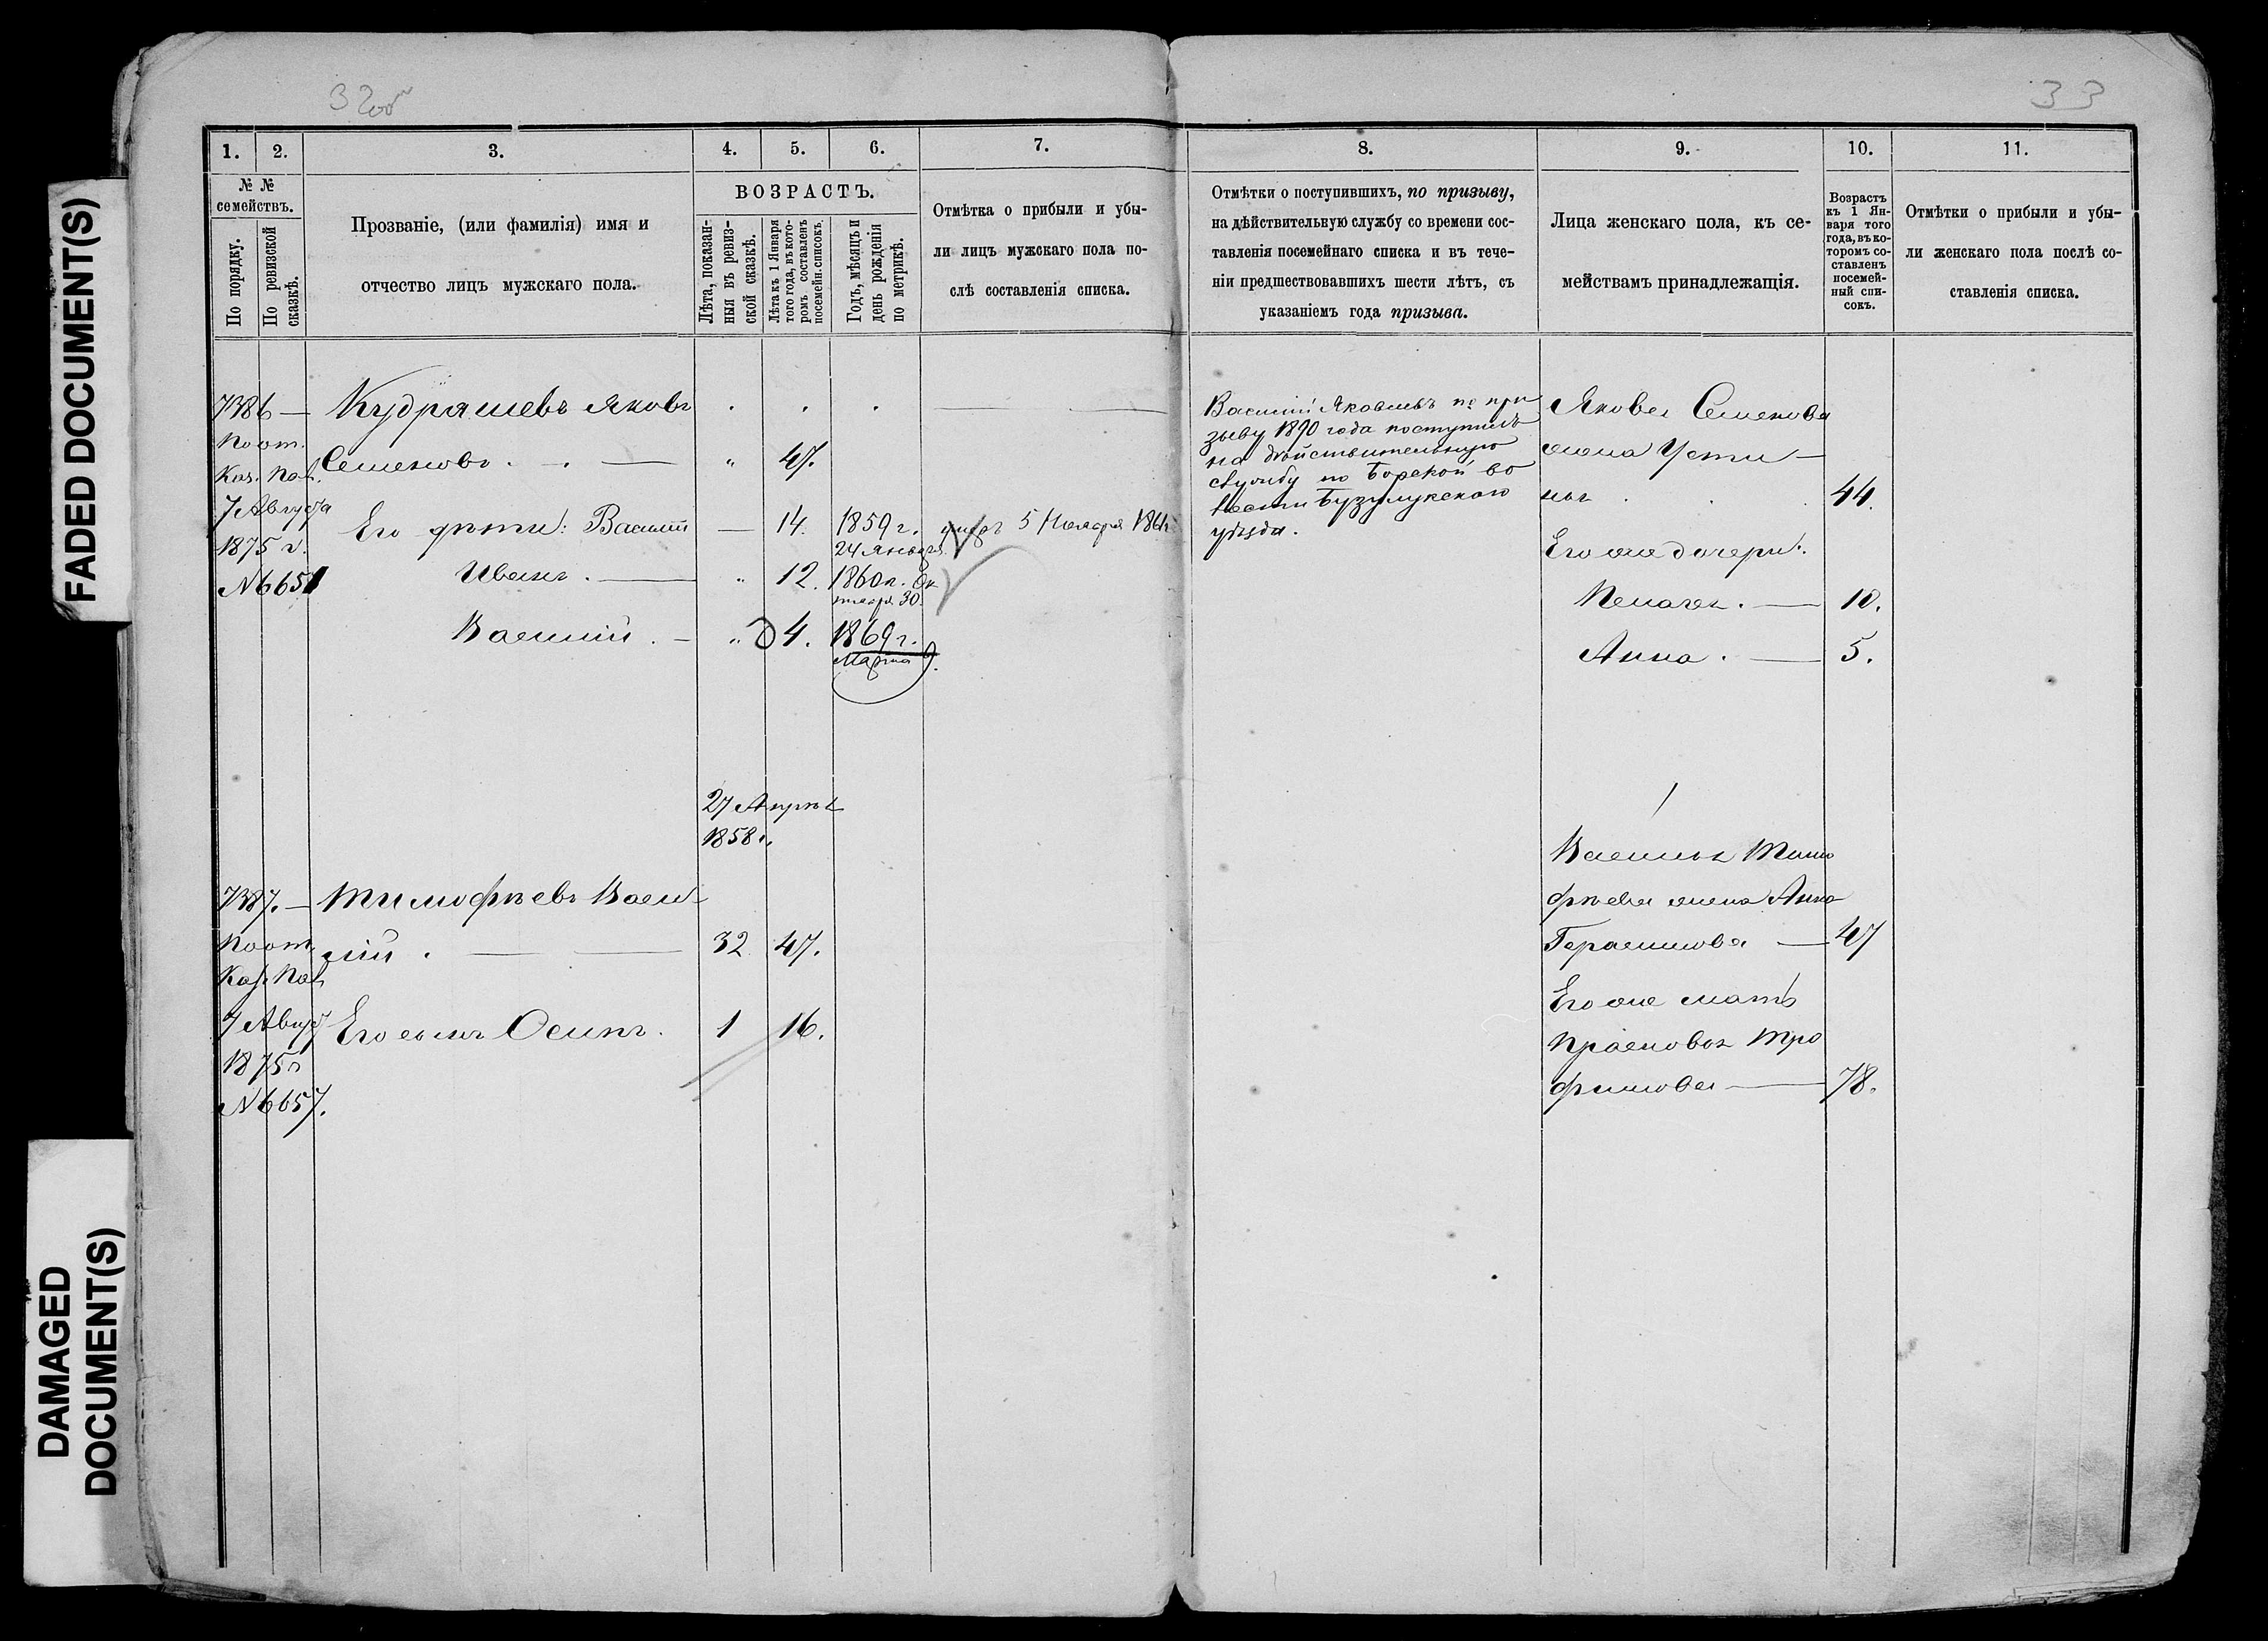 FADED DOCUMENT(S)
DAMAGED
DOCUMENT(S)
32об
33
1.
2.
3.
4.
5.
6.
7.
8.
9.
10.
11.
№ №
семействъ.
По порядку.
По ревизской
сказкѣ.
Прозваніе, (или фамилія) имя и
отчество лицъ мужскаго пола.
ВОЗРАСТЪ.
Лѣта, показан-
ныя въ ревиз-
ской сказкѣ.
Лѣта къ 1 Января
того года, въ кото-
ромъ составленъ
посемейн. списокъ.
Годъ, мѣсяцъ и
день рожденія
по метрикѣ.
Отмѣтка о прибыли и убы-
ли лицъ мужскаго пола по-
слѣ составленія списка.
Отмѣтки о поступившихъ, по призыву,
на дѣйствительную службу со времени сос-
тавленія посемейнаго списка и въ тече-
ніи предшествовавшихъ шести лѣтъ, съ
указаніемъ года призыва.
Лица женскаго пола, къ се-
мействамъ принадлежащія.
Возрастъ
къ 1 Ян-
варя того
года, въ ко-
торомъ со-
ставленъ
посемей-
ный спи-
сокъ.
Отмѣтки о прибыли и убы-
ли женскаго пола послѣ со-
ставленія списка.
7386 —
Поот.
Каз. Пал.
7 Августа
1875 г.
№ 6651
Кудряшевъ Яковъ
Семеновъ . — 47.
Его дѣти: Василий — 14. 1859 г.
24 Января
умеръ 5 Ноября
Иванъ . — 12. 1860 г. Ок
тября 30.
Василий . — 4. 1869 г.
Марта 9.
Василий Яковлевъ по при
зыву 1890 года поступилъ
на дѣйствительную
службу по Борской во
лости Бузулукского
уѣзда.
Якова Семенова
жена Усти—
нья . 44.
Его же дочери:
Пелагея . — 10.
Анна . — 5.
27 Апрѣля
1858 г.
7387. —
Поот.
Каз. Пал.
7 Август
1875 г
№ 6657.
Тимофѣевъ Васи
лій . — 32 47.
Его сынъ Осипъ . 1 16.
Василья Тимо
фѣева жена Анна
Герасимова — 47
Его же мать
Прасковья Тро
фимова — 78.